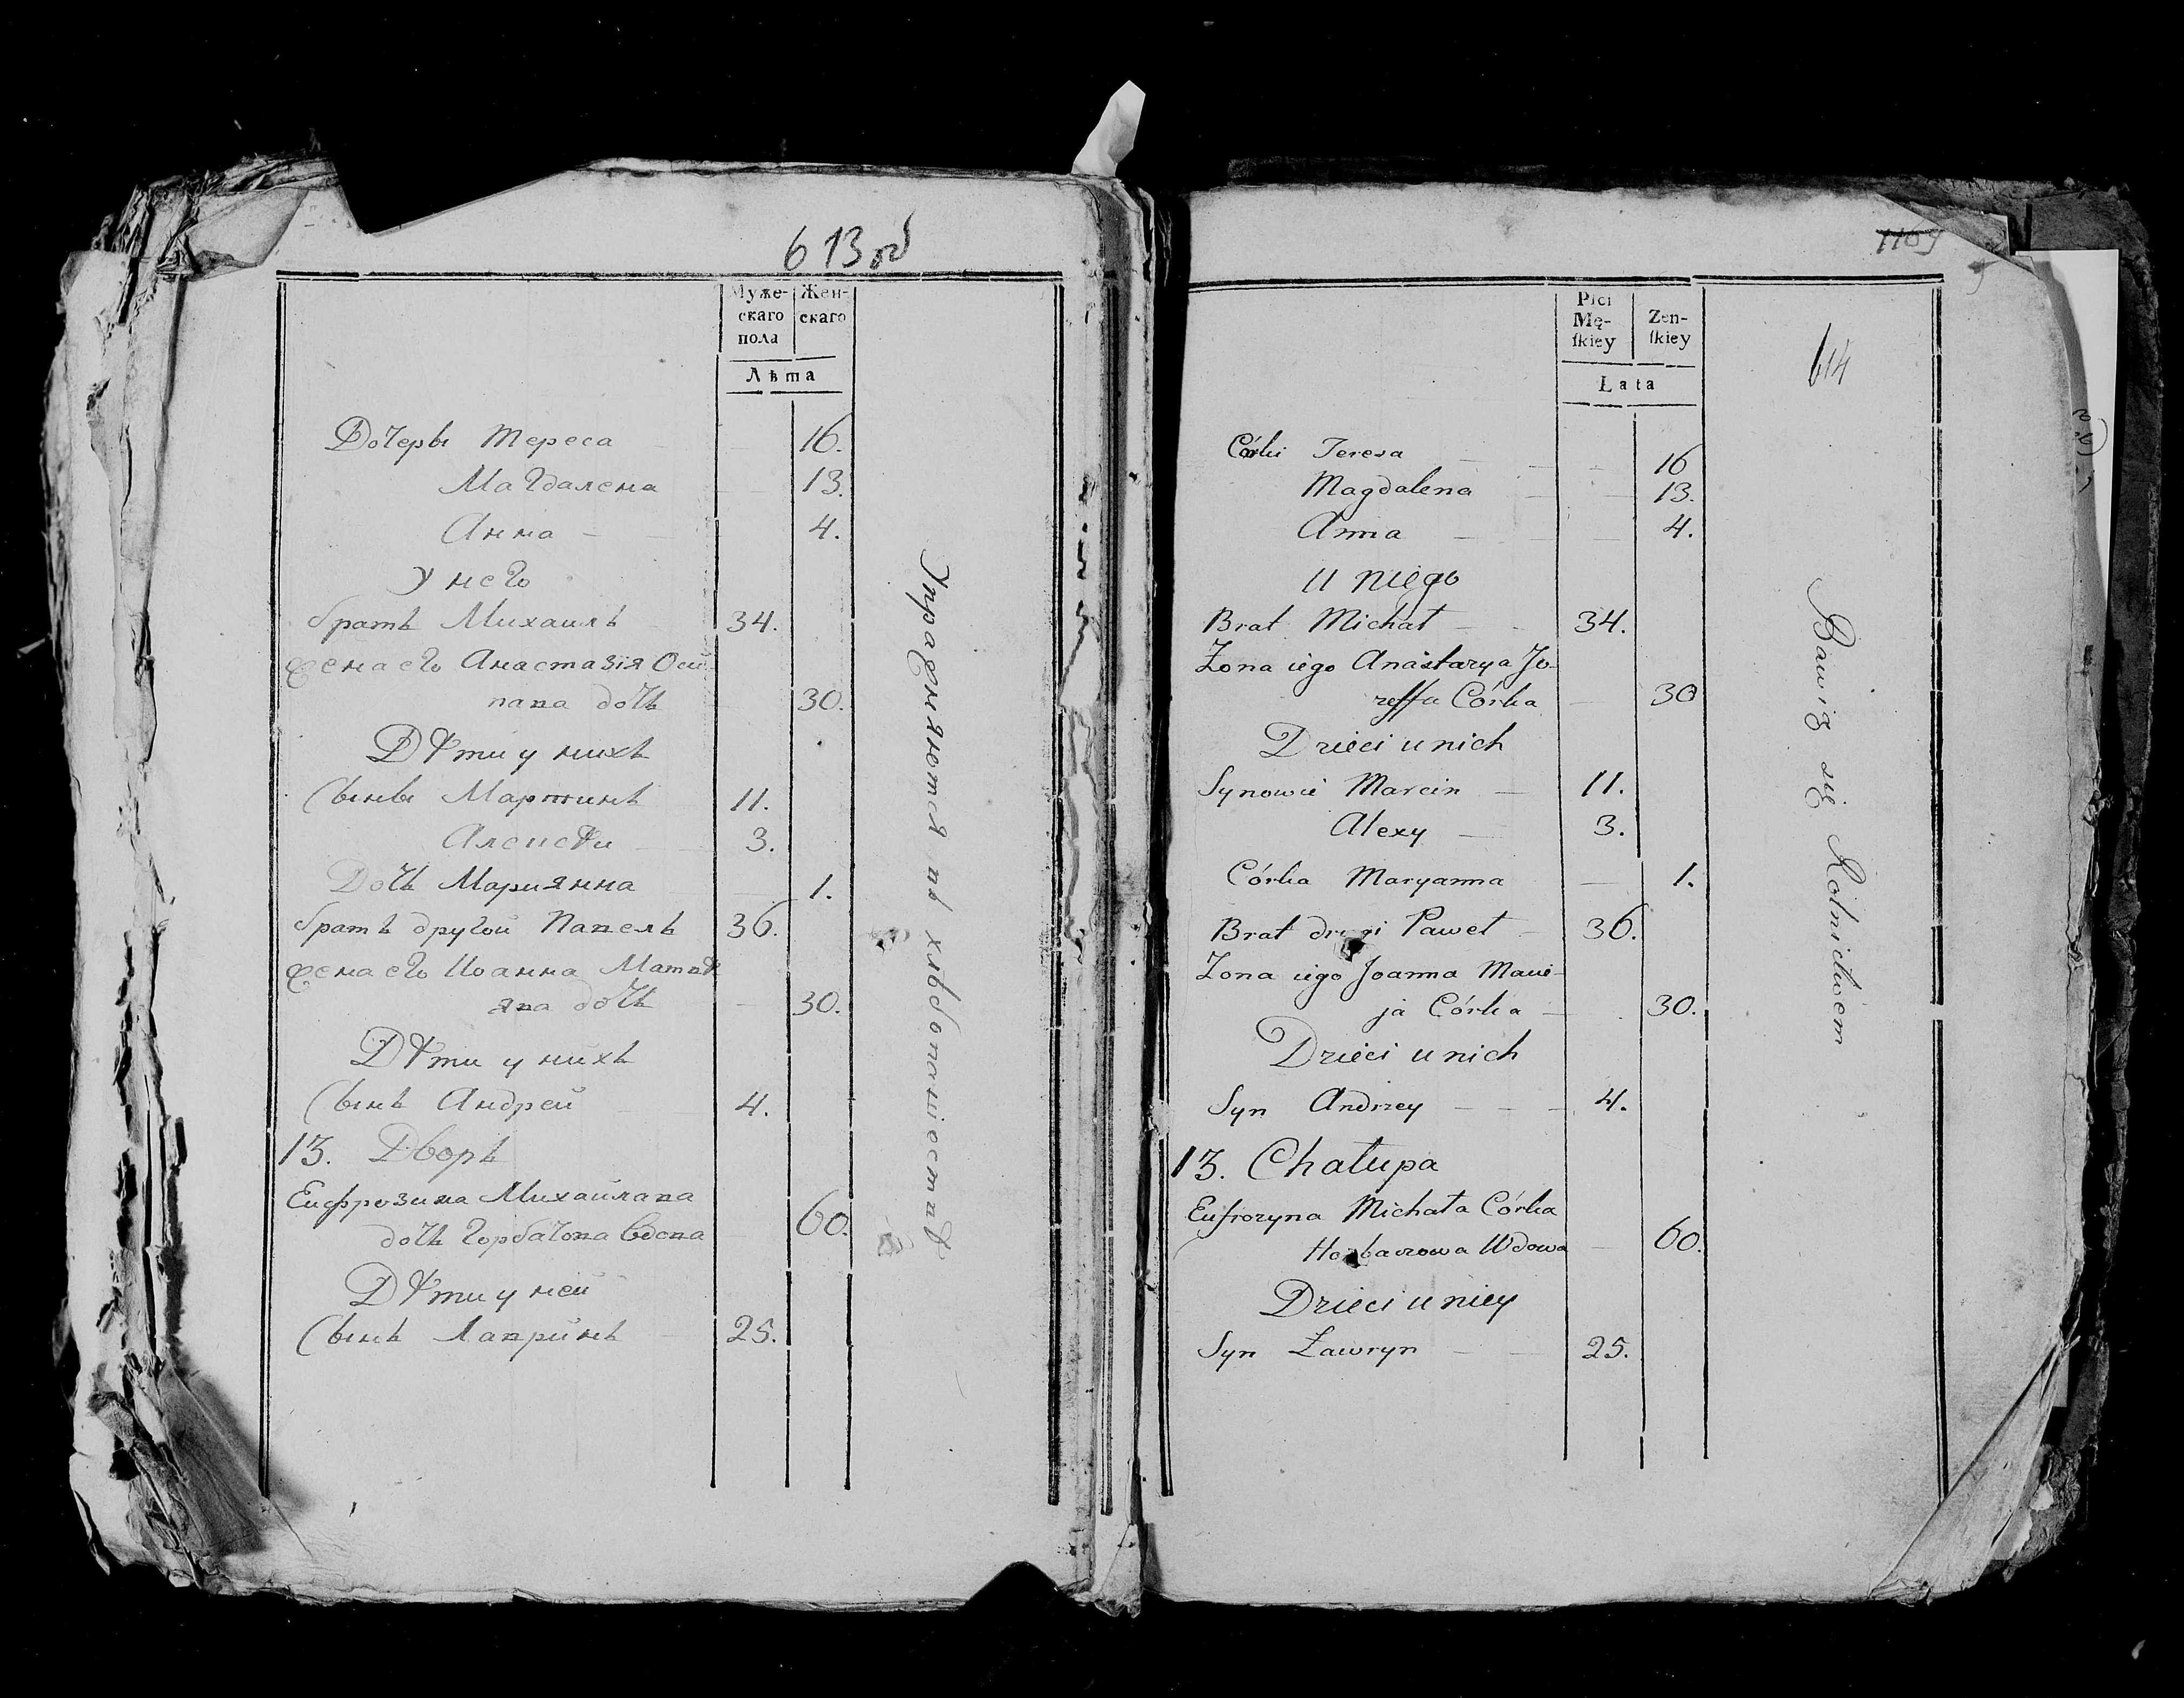 613об
Муже-
скаго
пола
Жен-
скаго
Лѣта
Дочеры Тереса 16.
Магдалена 13.
Анна 4.
У него
братъ Михаилъ 34.
жена его Анастазія Оси-
пава дочь 30.
Дѣти у нихъ
Сыны Мартинъ 11.
Алексѣи 3.
Дочь Марианна 1.
братъ другой Павелъ 36.
жена его Иоанна Матвѣ
ява дочь 30.
Дѣти у нихъ
Сынъ Андрей 4.
13. Дворъ
Еифрозина Михайлава
дочь Горбачова вдова 60.
Дѣти у ней
Сынъ Лавринъ 25.
Упражняются въ хлѣбопашествѣ
1109
Płci
Mę-
ſkiey
Zen-
ſkiey
Lata
614
Córki Teresa 16
Magdalena 13.
Anna 4.
U niego
Brat Michał 34.
Żona iego Anastazya Jo-
zeffa Córka 30
Dzieci u nich
Synowie Marcin 11.
Alexy 3.
Córka Maryanna 1.
Brat drugi Paweł 36.
Żona iego Joanna Macie-
ja Córka 30.
Dzieci u nich
Syn Andrzey 4.
13. Chałupa
Eufrozyna Michała Córka
Horbaczowa Wdowa 60.
Dzieci u niey
Syn Ławryn 25.
Bawią się Rolnictwem